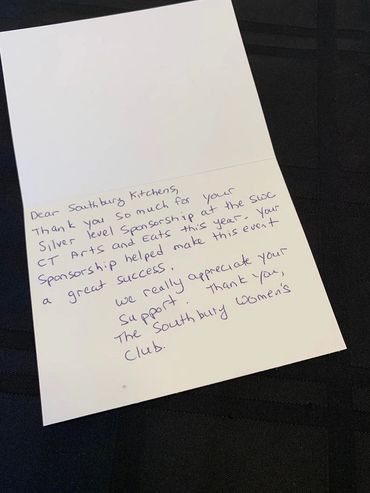 Dear Southbury Kitchens,
Thank you so much for your
Silver level Sponsorship at the SWC
CT Arts and Eats this year. Your
Sponsorship helped make this event
a great success.
We really appreciate your
support. Thank you,
The Southbury Women's
Club.